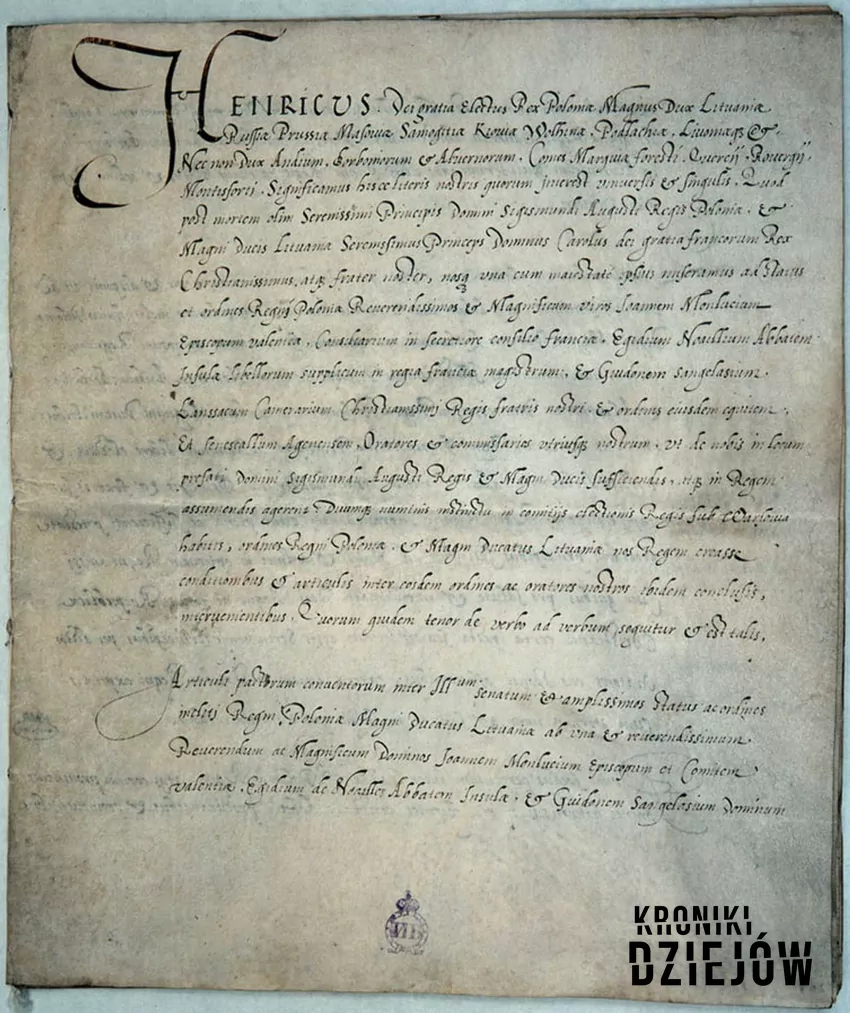 HENRICUS. Dei gratia Electus Rex Poloniæ Magnus Dux Lituaniæ
Russiæ Prussiæ Masoviæ Samogitiæ Kiowiæ Wolhiniæ, Podlachiæ, Livoniæq3 &.
Nec non Dux Andium, Borboniorum & Alvernorum, Comes Marquiæ foresti, Quercij, Rovergij,
Montisforti, Significamus hisce literis nostris quorum interest universis & singulis, Quod
post mortem olim Serenissimi Principis Domini Sigismundi Augusti Regis Poloniæ, &
Magni Ducis Lituaniæ Serenissimus Princeps Dominus Carolus dei gratia francorum Rex
Christianissimus, atq3 frater noster, nosq3 una cum maiestate ipsius miseramus ad status
et ordines Regni Poloniæ Reverendissimos & Magnificum viros Joannem Monlucium
Episcopum valentiæ, Consiliarium in secretiore consilio franciæ, Egidium Noaillium Abbatem
Insulæ libellorum supplicum in regia franciæ magistrum, & Guidonem Sangelasium
Lanssacum Camerarium Christianissimi Regis fratris nostri, & ordinis eiusdem equitem,
Et Senescallum Agenensem, Oratores & commissarios utriusq3 nostrum, ut de nobis in locum
prefati Domini Sigismundi Augusti Regis & Magni Ducis sufficiendis, atq3 in Regem
assumendis agerent. Dumq3 numinis instinctu in comitijs electionis Regis sub Warsovia
habitis, ordines Regni Poloniæ, & Magni Ducatus Lituaniæ nos Regem creasse
conditionibus & articulis inter eosdem ordines ac oratores nostros ibidem conclusis,
intervenientibus. Quorum quidem tenor de verbo ad verbum sequitur & est talis.
Articuli pactorum conventorum inter Illum. Senatum & amplissimos status ac ordines
incliti Regni Poloniæ Magni Ducatus Lituaniæ ab una & reverendissimum
Reverendum ac Magnificum Dominos Joannem Monlucium Episcopum et Comitem
valentiæ, Egidium de Noailles Abbatem Insulæ, & Guidonem Sangelasium Dominum
KRONIKI
DZIEJÓW